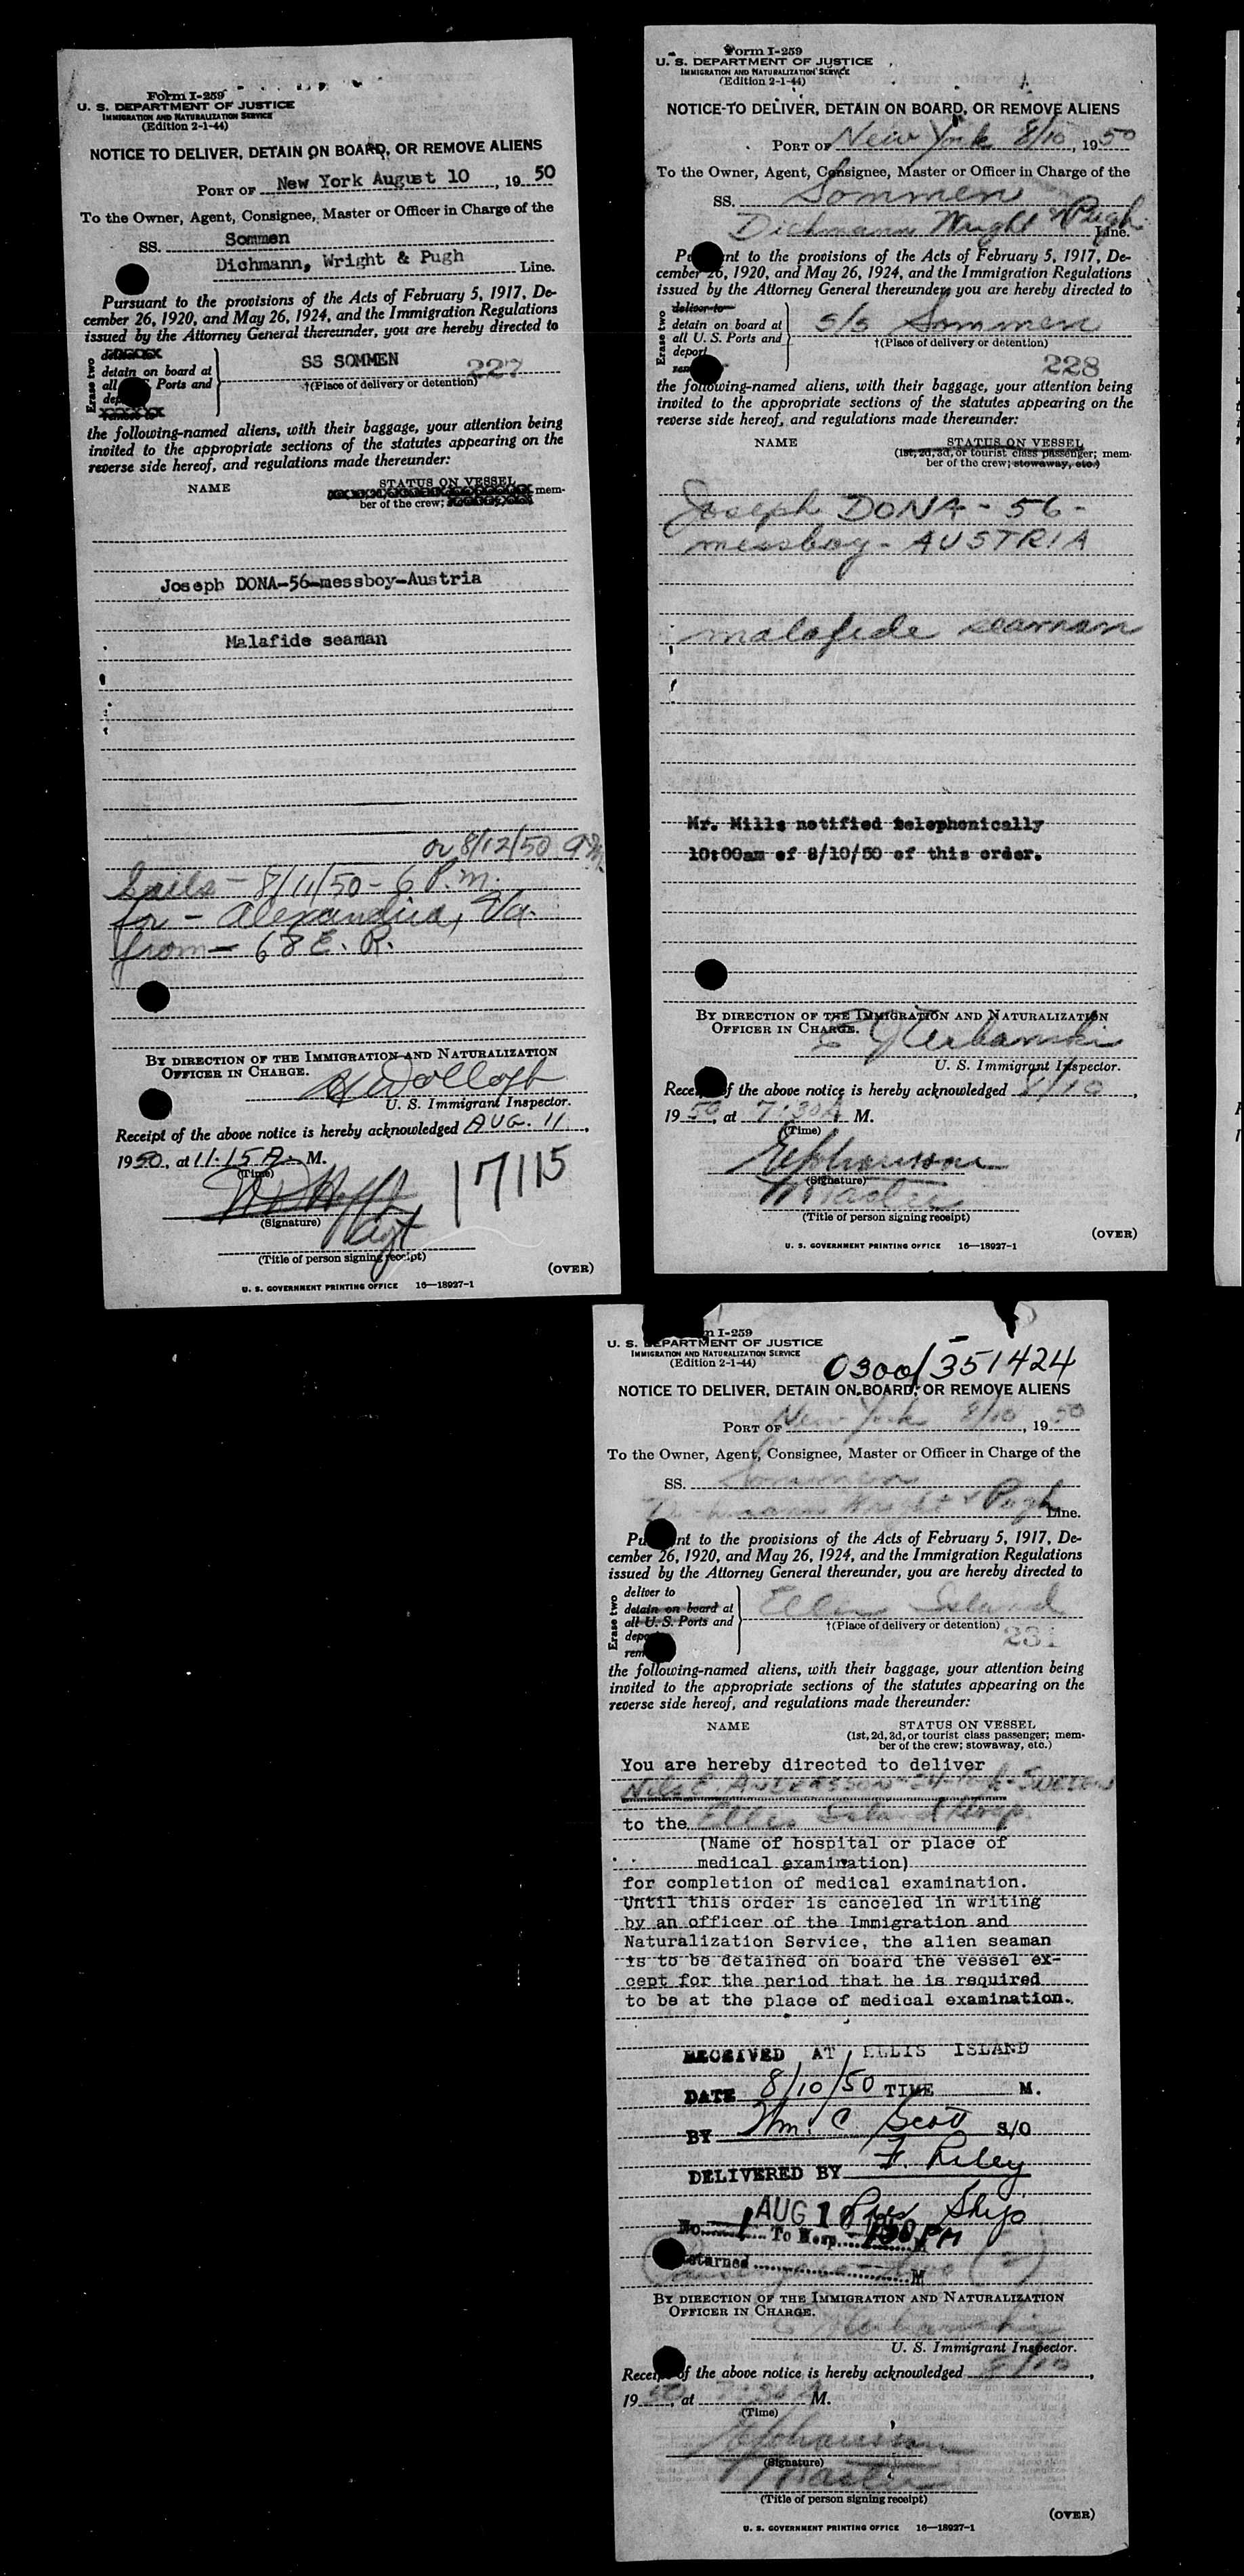 Form I-259
U. S. DEPARTMENT OF JUSTICE
IMMIGRATION AND NATURALIZATION SERVICE
(Edition 2-1-44)
NOTICE TO DELIVER, DETAIN ON BOARD, OR REMOVE ALIENS
PORT OF New York August 10, 19 50
To the Owner, Agent, Consignee, Master or Officer in Charge of the
SS. Sommen
Dichmann, Wright & Pugh Line.
Pursuant to the provisions of the Acts of February 5, 1917, De-
cember 26, 1920, and May 26, 1924, and the Immigration Regulations
issued by the Attorney General thereunder, you are hereby directed to
Erase two
detain on board at
all Ports and
SS SOMMEN
†(Place of delivery or detention)
227
the following-named aliens, with their baggage, your attention being
invited to the appropriate sections of the statutes appearing on the
reverse side hereof, and regulations made thereunder:
NAME STATUS ON VESSEL
mem-
ber of the crew;
Joseph DONA-56-messboy-Austria
Malafide seaman
or 8/12/50 9
Sails - 8/11/50 - 6 P.m.
for - Alexandria, Va.
from - 68 E. R.
BY DIRECTION OF THE IMMIGRATION AND NATURALIZATION
OFFICER IN CHARGE.
U. S. Immigrant Inspector.
Receipt of the above notice is hereby acknowledged AUG. 11,
1950, at 11.15 A. M.
(Time)
17115
(Signature)
Agt
(Title of person signing receipt)
(OVER)
U. S. GOVERNMENT PRINTING OFFICE 16—18927-1
Form I-259
U. S. DEPARTMENT OF JUSTICE
IMMIGRATION AND NATURALIZATION SERVICE
(Edition 2-1-44)
NOTICE TO DELIVER, DETAIN ON BOARD, OR REMOVE ALIENS
PORT OF New York 8/10, 1950
To the Owner, Agent, Consignee, Master or Officer in Charge of the
SS. Sommen
Dichmann Wright & Pugh Line.
Pu nt to the provisions of the Acts of February 5, 1917, De-
cember 26, 1920, and May 26, 1924, and the Immigration Regulations
issued by the Attorney General thereunder, you are hereby directed to
Erase two
deliver to
detain on board at
all U. S. Ports and
deport
s/s Sommen
†(Place of delivery or detention)
228
the following-named aliens, with their baggage, your attention being
invited to the appropriate sections of the statutes appearing on the
reverse side hereof, and regulations made thereunder:
NAME STATUS ON VESSEL
(1st, 2d, 3d, or tourist class passenger; mem-
ber of the crew; stowaway, etc.)
Joseph DONA - 56 -
messboy - AUSTRIA
malafide seaman
Mr. Mills notified telephonically
10:00am of 8/10/50 of this order.
BY DIRECTION OF THE IMMIGRATION AND NATURALIZATION
OFFICER IN CHARGE.
E Urbanski
U. S. Immigrant Inspector.
Rece f the above notice is hereby acknowledged 8/10,
19 50, at 7:30 A M.
(Time)
(Signature)
Master
(Title of person signing receipt)
(OVER)
U. S. GOVERNMENT PRINTING OFFICE 16—18927-1
m I-259
U. S. DEPARTMENT OF JUSTICE
IMMIGRATION AND NATURALIZATION SERVICE
(Edition 2-1-44)
0300/351424
NOTICE TO DELIVER, DETAIN ON BOARD, OR REMOVE ALIENS
PORT OF New York 8/10, 19 50
To the Owner, Agent, Consignee, Master or Officer in Charge of the
SS. Sommen
Dichmann Wright & Pugh Line.
Pu nt to the provisions of the Acts of February 5, 1917, De-
cember 26, 1920, and May 26, 1924, and the Immigration Regulations
issued by the Attorney General thereunder, you are hereby directed to
Erase two
deliver to
detain on board at
all U. S. Ports and
depo
rem
Ellis Island
†(Place of delivery or detention)
231
the following-named aliens, with their baggage, your attention being
invited to the appropriate sections of the statutes appearing on the
reverse side hereof, and regulations made thereunder:
NAME STATUS ON VESSEL
(1st, 2d, 3d, or tourist class passenger; mem-
ber of the crew; stowaway, etc.)
You are hereby directed to deliver
Nils E. ANDERSSON - 24 - SWEDEN
to the Ellis Island Hosp.
(Name of hospital or place of
medical examination)
for completion of medical examination.
Until this order is canceled in writing
by an officer of the Immigration and
Naturalization Service, the alien seaman
is to be detained on board the vessel ex-
cept for the period that he is required
to be at the place of medical examination.
RECEIVED AT ELLIS ISLAND
DATE 8/10/50 TIME M.
BY Wm. C. Scott S/O
DELIVERED BY F. Riley
AUG 1 Ship
No. 1 To Hosp. PM
eturned M
BY DIRECTION OF THE IMMIGRATION AND NATURALIZATION
OFFICER IN CHARGE.
E Urbanski
U. S. Immigrant Inspector.
Recei of the above notice is hereby acknowledged 8/10,
19 50, at 7:30 A M.
(Time)
(Signature)
Master
(Title of person signing receipt)
(OVER)
U. S. GOVERNMENT PRINTING OFFICE 16—18927-1